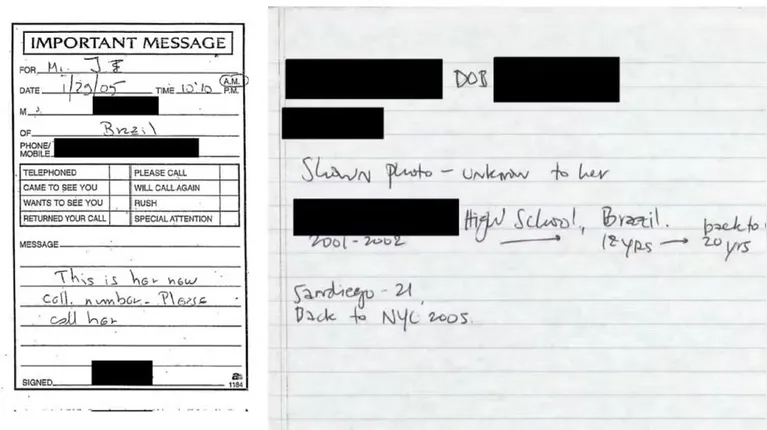 IMPORTANT MESSAGE
FOR Mr. JE
DATE 1/29/05 TIME 10:10 A.M.
P.M.
M
OF Brazil
PHONE/
MOBILE
TELEPHONED PLEASE CALL
CAME TO SEE YOU WILL CALL AGAIN
WANTS TO SEE YOU RUSH
RETURNED YOUR CALL SPECIAL ATTENTION
MESSAGE
This is her new
cell. number. Please
call her
SIGNED
1184
DOB
Shown photo - unknown to her
High School, Brazil. back to
2001-2002 → 18 yrs → 20 yrs
Sandiego - 21
Back to NYC 2005.